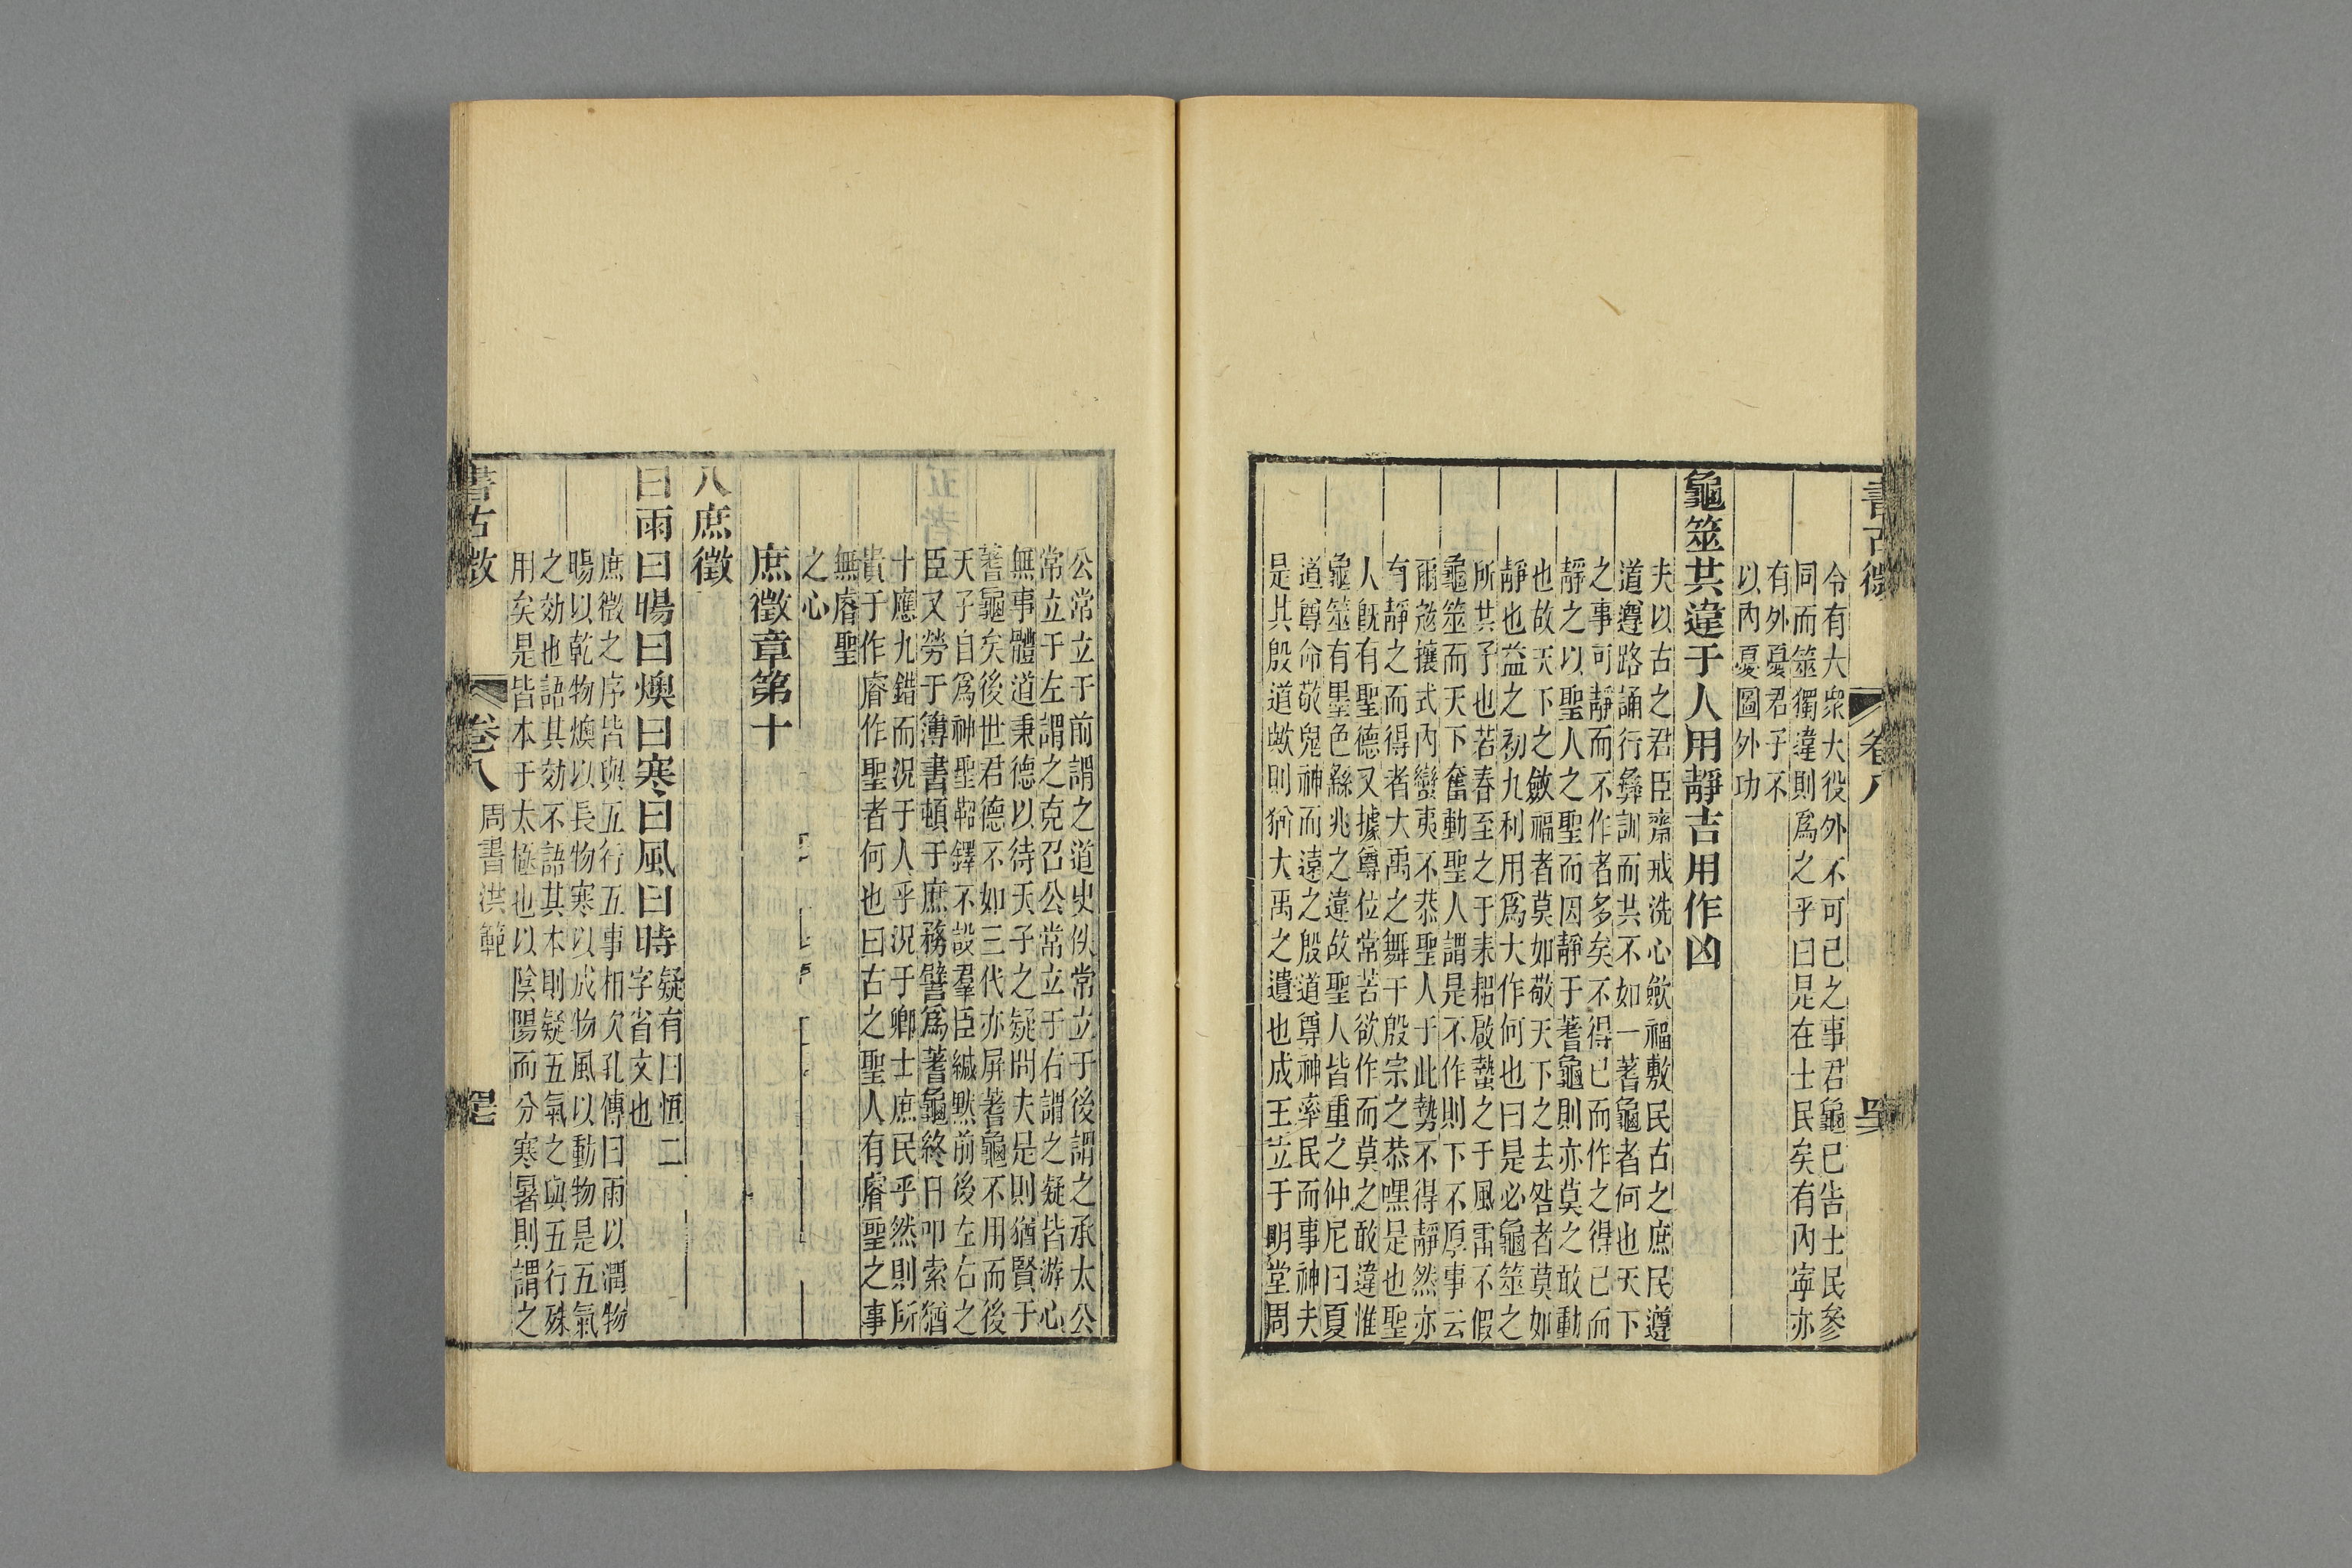 書古微
卷八
令有大衆大役外不可已之事君龜已吿士民參
同而筮獨違則爲之乎曰是在士民矣有內寧亦
有外憂君子不
以內憂圖外功
龜筮共違于人用靜吉用作凶
夫以古之君臣齋戒洗心歛福敷民古之庶民遵
道遵路誦行彝訓而共不如一蓍龜者何也天下
之事可靜而不作者多矣不得已而作之得已而
靜之以聖人之聖而因靜于蓍龜則亦莫之敢動
也故天下之斂福者莫如敬天下之去咎者莫如
靜也益之初九利用爲大作何也曰是必龜筮之
所其予也若春至之于耒耜啟蟄之于風雷不假
龜筮而天下奮動聖人謂是不作則下不原事云
爾尨攘式內變夷不恭聖人于此勢不得靜然亦
有靜之而得者大禹之舞干殷宗之恭嘿是也聖
人旣有聖德又據尊位常苦欲作而莫之敢違惟
龜筮有墨色繇兆之違故聖人皆重之仲尼曰夏
道尊命敬鬼神而遠之殷道尊神率民而事神夫
是其殷道歟則猶大禹之遺也成王立于明堂周
公常立于前謂之道史佚常立于後謂之承太公
常立于左謂之克召公常立于右謂之疑皆游心
無事體道秉德以待天子之疑問夫是則猶賢于
蓍龜矣後世君德不如三代亦屏蓍龜不用而後
天子自爲神聖鞀鐸不設羣臣緘默前後左右之
臣又勞于簿書頓于庶務譬爲蓍龜終日叩索猶
十應九錯而況于人乎況于卿士庶民乎然則所
貴于作睿作聖者何也曰古之聖人有睿聖之事
無睿聖
之心
庶徵章第十
八庶徵
曰雨曰暘曰燠曰寒曰風曰時
疑有曰恆二
字省文也
庶徵之序皆與五行五事相次孔傳曰雨以潤物
暘以乾物燠以長物寒以成物風以動物是五氣
之効也語其効不語其本則疑五氣之與五行殊
用矣是皆本于太極也以陰陽而分寒暑則謂之
書古微
卷八
周書洪範